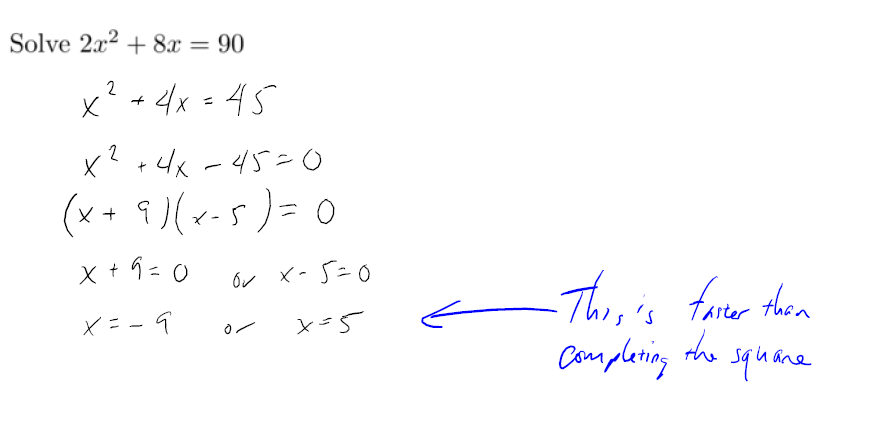 Solve 2x² + 8x = 90
x² + 4x = 45
x² + 4x - 45 = 0
(x + 9)(x - 5) = 0
x + 9 = 0 or x - 5 = 0
x = -9 or x = 5
This is faster than
completing the square